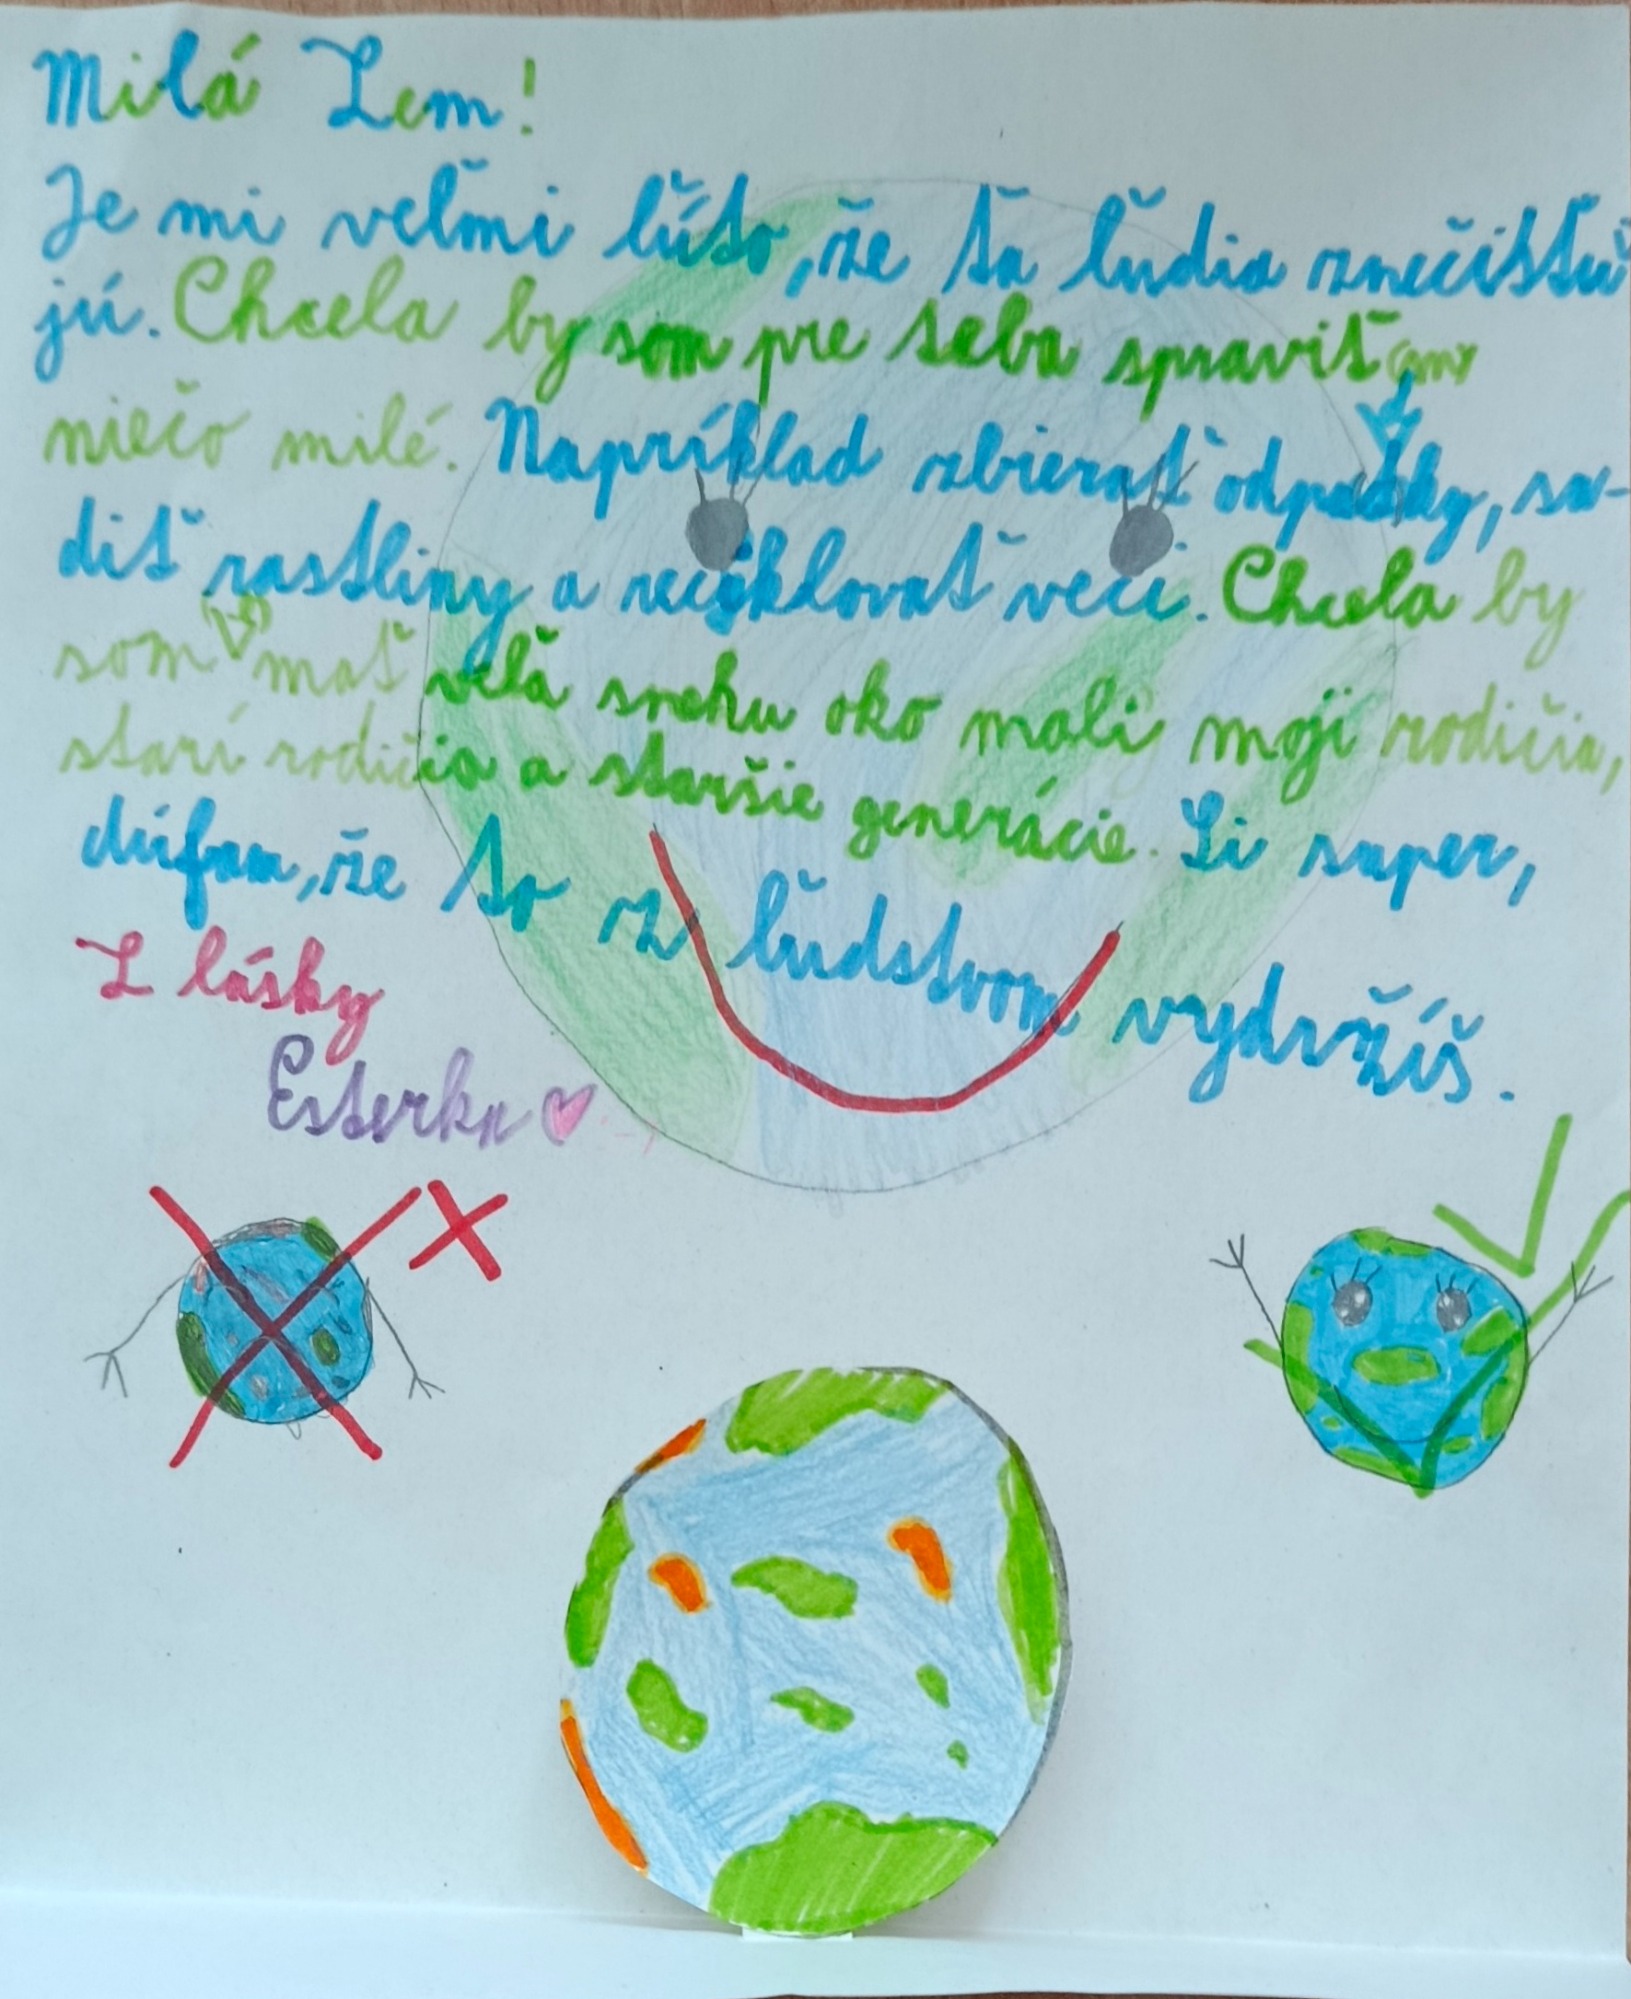 Milá Zem!
Je mi veľmi ľúto, že ťa ľudia znečisťu
jú. Chcela by som pre teba spraviť
niečo milé. Napríklad zbierať odpadky, sa-
diť rastliny a recyklovať veci. Chcela by
som mať veľa snehu ako mali moji rodičia,
starí rodičia a staršie generácie. Si super,
dúfam, že to z ľudstvom vydržíš.
Z lásky
Esterka